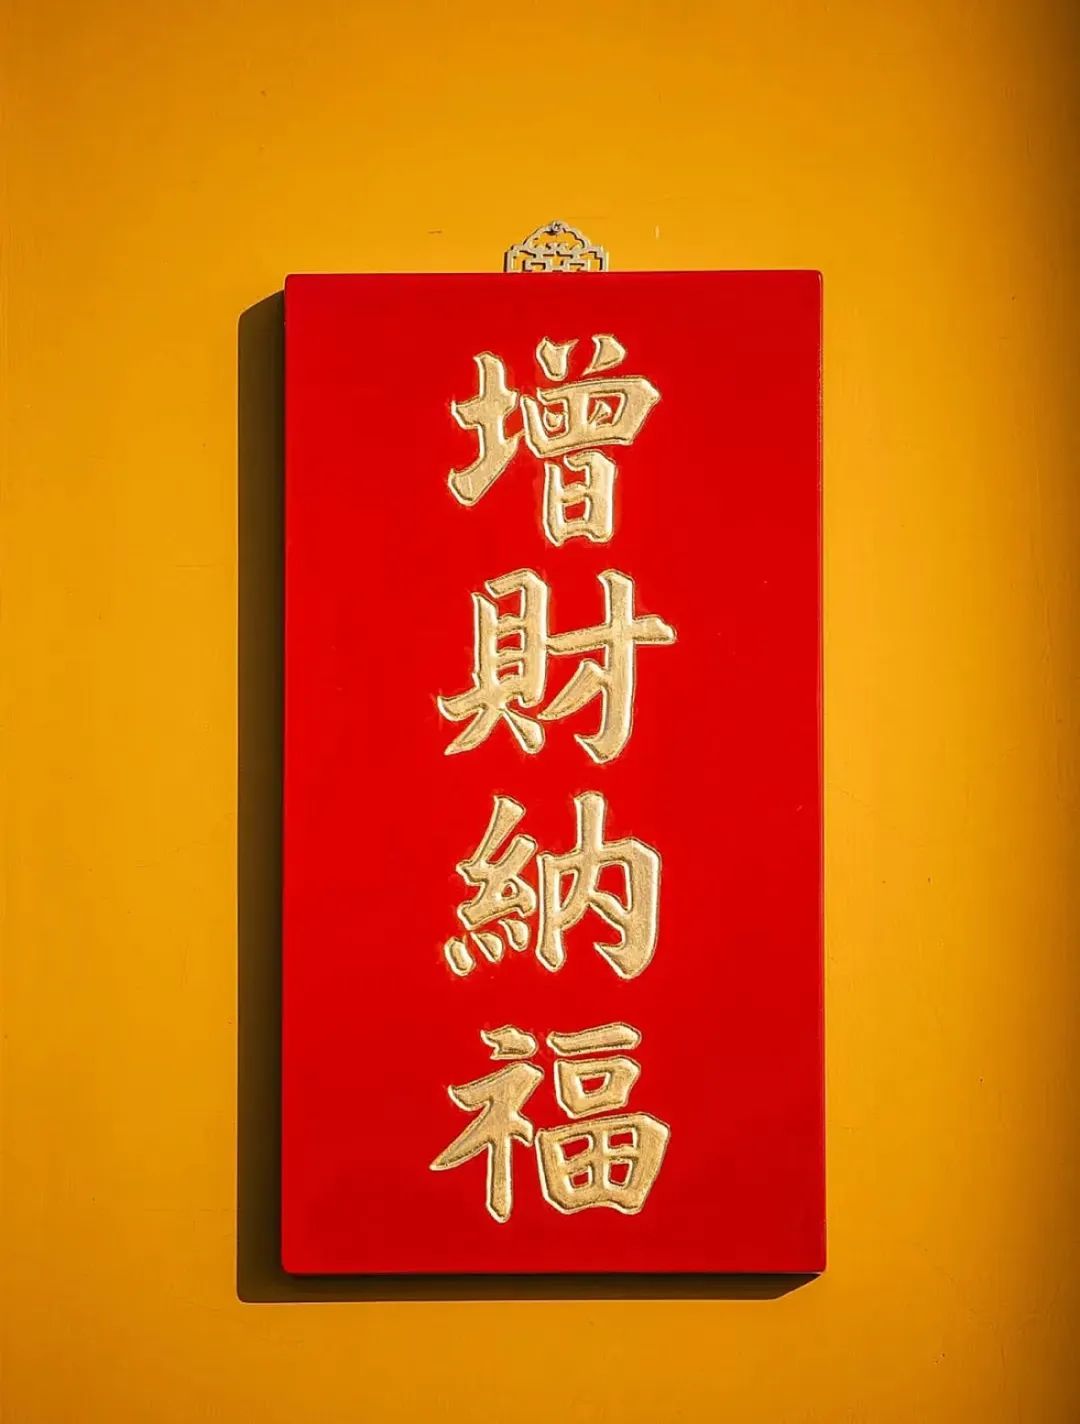 增財納福